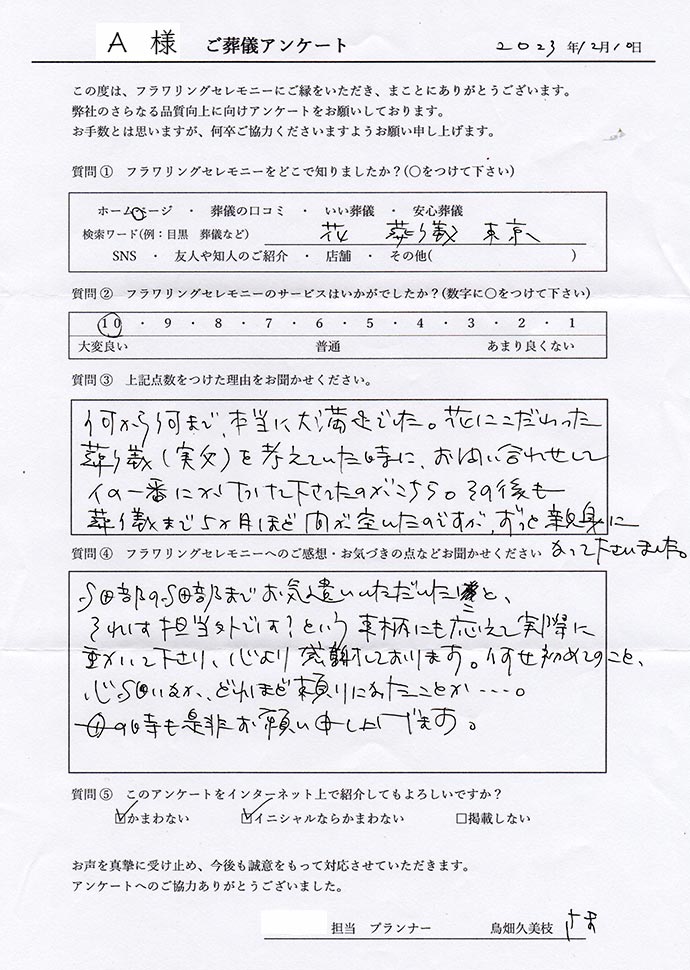 A 様 ご葬儀アンケート 2023年12月10日
この度は、フラワリングセレモニーにご縁をいただき、まことにありがとうございます。
弊社のさらなる品質向上に向けアンケートをお願いしております。
お手数とは思いますが、何卒ご協力くださいますようお願い申し上げます。
質問① フラワリングセレモニーをどこで知りましたか？(〇をつけて下さい)
ホームページ ・ 葬儀の口コミ ・ いい葬儀 ・ 安心葬儀
検索ワード(例：目黒 葬儀など) 花 葬儀 東京
SNS ・ 友人や知人のご紹介 ・ 店舗 ・ その他( )
質問② フラワリングセレモニーのサービスはいかがでしたか？(数字に〇をつけて下さい)
10 ・ 9 ・ 8 ・ 7 ・ 6 ・ 5 ・ 4 ・ 3 ・ 2 ・ 1
大変良い 普通 あまり良くない
質問③ 上記点数をつけた理由をお聞かせください。
何から何まで、本当に大満足でした。花にこだわった
葬儀(実父)を考えていた時に、お問い合わせして
イの一番にかけつけて下さったのがこちら。その後も
葬儀まで5ヶ月ほど間が空いたのですが、ずっと親身に
なって下さいました。
質問④ フラワリングセレモニーへのご感想・お気づきの点などお聞かせください
細部の細部までお気遣いいただいたこと、
それは担当外では？という事柄にも応えて実際に
動いて下さり、心より感謝しております。何せ初めてのこと、
心細いなか、どれほど頼りになったことか…。
の時も是非お願い申し上げます。
質問⑤ このアンケートをインターネット上で紹介してもよろしいですか？
☑かまわない ☑イニシャルならかまわない □掲載しない
お声を真摯に受け止め、今後も誠意をもって対応させていただきます。
アンケートへのご協力ありがとうございました。
担当 プランナー 鳥畑久美枝 さま